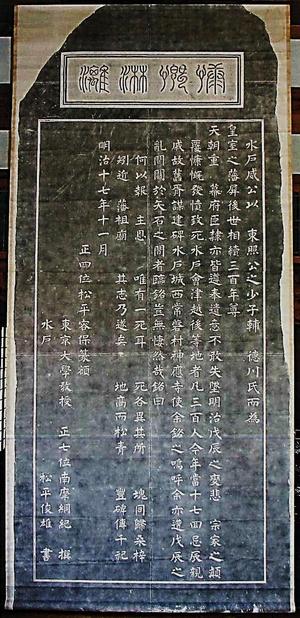 水戸威公以　東照公之少子輔　德川氏而為
皇室之藩屏後世相續三百年尊
天朝重　幕府臣隷亦皆遵奉遺意不敢失墜明治戊辰之變悲　宗家之顛
覆慷慨發憤致死水戸會津越後等地者凡三百人今年當十七回忌辰親
戚故舊胥謀建碑水戸城西常磐村神應寺使余銘之嗚呼余亦遭戊辰之
亂間關於矢石之間者臨銘豈無悽然哉銘曰
何以報　主恩　唯有一死耳　死各異其所　塊同歸桑梓
矧近　藩祖廟　其志乃遂矣　地高而松青　豐碑傳千祀
明治十七年十一月
正四位松平容保篆額
東京大學敎授　正七位南摩綱紀　撰
水戸　松平俊雄　書